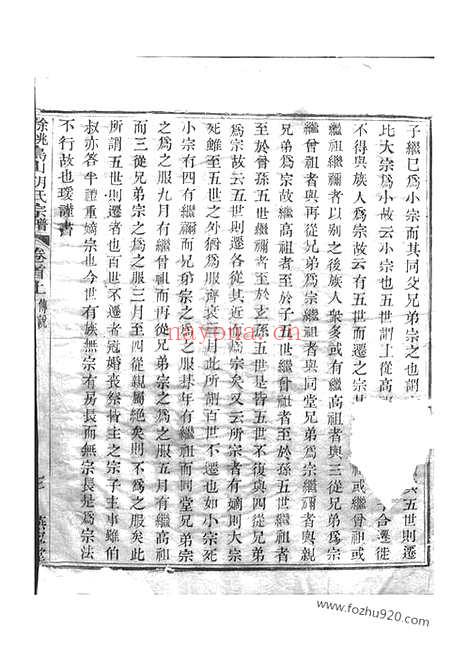 子繼已爲小宗而其同父兄弟宗之也謂
五世則遷
比大宗爲小宗故云小宗也五世謂上從高
合遷徙
不得與族人爲宗故云有五世而遷之宗其
繼祖繼禰者以別之後族人衆多或有繼高祖者與三從兄弟爲宗
繼曾祖者與再從兄弟爲宗繼祖者與同堂兄弟爲宗繼禰者與親
兄弟爲宗故繼高祖者至於子五世繼曾祖者至於孫五世繼祖者
至於曾孫五世繼禰者至於玄孫五世是皆五世不復與四從兄弟
爲宗故云五世則遷各從其近爲宗矣又云所宗者有嫡則大宗
死雖至五世之外猶爲之服齊衰三月此所謂百世不遷也如小宗死
小宗有四有繼禰而兄弟宗之爲之服朞年有繼祖而同堂兄弟宗
之爲之服九月有繼曾祖而再從兄弟宗之爲之服五月有繼高祖
而三從兄弟宗之爲之服三月至四從親屬絶矣則不爲之服矣此
所謂五世則遷者也百世不遷者冠婚喪祭皆主之宗子主事雖伯
叔亦答半禮重嫡宗也今世有族無宗有房長而無宗長是爲宗法
不行故也瑗謹書
餘姚烏山胡氏宗譜
卷首上
傳說
nayona.cn
www.fozhu920.com